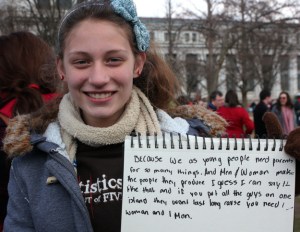 tistics
T OF FIV
Because we as young people need parents
for so many things. And Men/Woman make
the people they produce I guess I can say I
like that and if you put all the guys on one
island they wont last long cause you need 1
woman and 1 Man.